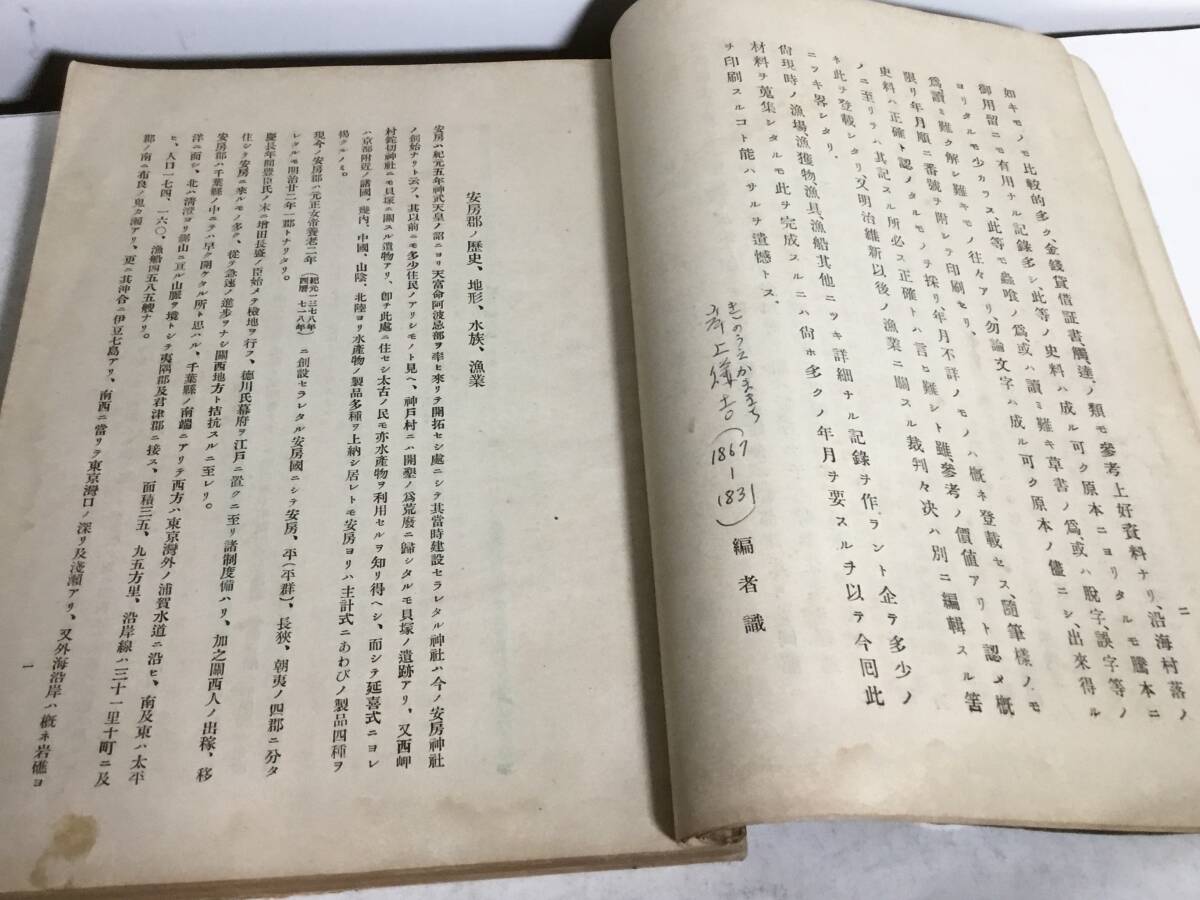 二
如キモノモ比較的多ク、金錢貸借証書、觸達ノ類モ參考上好資料ナリ、沿海村落ノ
御用留ニモ有用ナル記錄多シ、此等ノ史料ハ成ル可ク原本ニヨリタルモ謄本ニ
ヨリタルモ少カラス、此等モ蟲喰ノ爲、或ハ讀ミ難キ草書ノ爲、或ハ脫字、誤字等ノ
爲讀ミ難ク解シ難キモノ往々アリ、勿論文字ハ成ル可ク原本ノ儘ニシ、出來得ル
限リ年月順ニ番號ヲ附シテ印刷セリ、
史料ハ正確ト認メタルモノヲ採リ年月不詳ノモノハ槪ネ登載セス、隨筆樣ノモ
ノニ至リテハ其記スル所必ス正確トハ言ヒ難シト雖、參考ノ價値アリト認メ槪
ネ此ヲ登載シタリ、又明治維新以後ノ漁業ニ關スル裁判々決ハ別ニ編輯スル筈
ニツキ畧シタリ、
尙現時ノ漁場、漁獲物、漁具、漁船其他ニツキ詳細ナル記錄ヲ作ラント企ラ多少ノ
材料ヲ蒐集シタルモ此ヲ完成スルニハ尙ホ多クノ年月ヲ要スルヲ以テ今回此
ヲ印刷スルコト能ハサルヲ遺憾トス、
編者識
(1867-1831)
安房郡ノ歷史、地形、水族、漁業
安房ハ紀元五年神武天皇ノ詔ニヨリ天富命阿波忌部ヲ率ヒ來リテ開拓セシ處ニシテ其當時建設セラレタル神社ハ今ノ安房神社
ノ創始ナリト云フ、其以前ニモ多少住民ノアリシモノト見ヘ、神戶村ニハ開墾ノ爲荒廢ニ歸シタルモ貝塚ノ遺跡アリ、又西岬
村鉈切神社ニモ貝塚ニ關スル遺物アリ、卽チ此處ニ住セシ太古ノ民モ亦水產物ヲ利用セルヲ知リ得ヘシ、而シテ延喜式ニヨレ
ハ京都附近ノ諸國、幾內、中國、山陰、北陸ヨリ水產物ノ製品多種ヲ上納シ居レトモ安房ヨリハ主計式ニあわびノ製品四種ヲ
揭クルノミ。
現今ノ安房郡ハ元正女帝養老二年(紀元一三七八年 西曆七一八年)ニ創設セラレタル安房國ニシテ安房、平(平群)、長狹、朝夷ノ四郡ニ分タ
レタルモ明治廿二年一郡トナリタリ。
慶長年間豐臣氏ノ末ニ增田長盛ノ臣始メテ檢地ヲ行フ、德川氏幕府ヲ江戶ニ置クニ至リ諸制度備ハリ、加之關西人ノ出稼、移
住シテ安房ニ來ルモノ多ク、從テ急速ノ進步ヲナシ關西地方ト拮抗スルニ至レリ。
安房郡ハ千葉縣ノ中ニテハ早ク開ケタル所ト思ハル、千葉縣ノ南端ニアリテ西方ハ東京灣外ノ浦賀水道ニ沿ヒ、南及東ハ太平
洋ニ面シ、北ハ淸澄ヨリ鋸山ニ亘ル山脈ヲ境トシテ夷隅郡及君津郡ニ接ス、面積三五、九五方里、沿岸線ハ三十一里十町ニ及
ヒ、人口一七四、一六〇、漁船四五八五艘ナリ。
郡ノ南ニ布良ノ鬼カ瀨アリ、更ニ其沖合ニ伊豆七島アリ、南西ニ當リテ東京灣口ノ深リ及淺瀨アリ、又外海沿岸ハ槪ネ岩礁ヨ
一